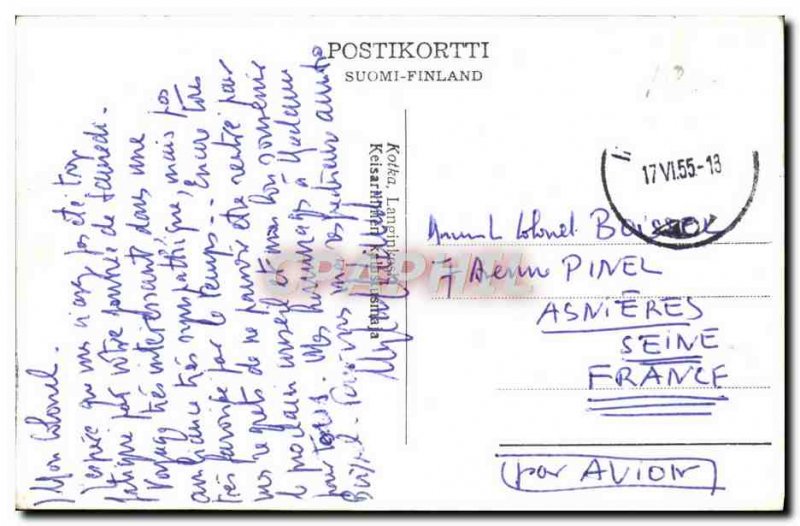 POSTIKORTTI
SUOMI-FINLAND
Mon Colonel.
J'espère que vous n'avez pas été trop
fatigué par votre journée de Samedi.
Voyage très intéressant dans une
ambiance très sympathique, mais pas
très favorisé par le temps... Encore tous
mes regrets de ne pouvoir être rentré pour
le prochain conseil et mon bon souvenir
pour tous. Mes hommages à Madame
Kotka, Langinkoski
Keisarillinen kalastusmaja
17.VI.55.-13
Colonel
7 Avenue PINEL
ASNIÈRES
SEINE
FRANCE
(par AVION)